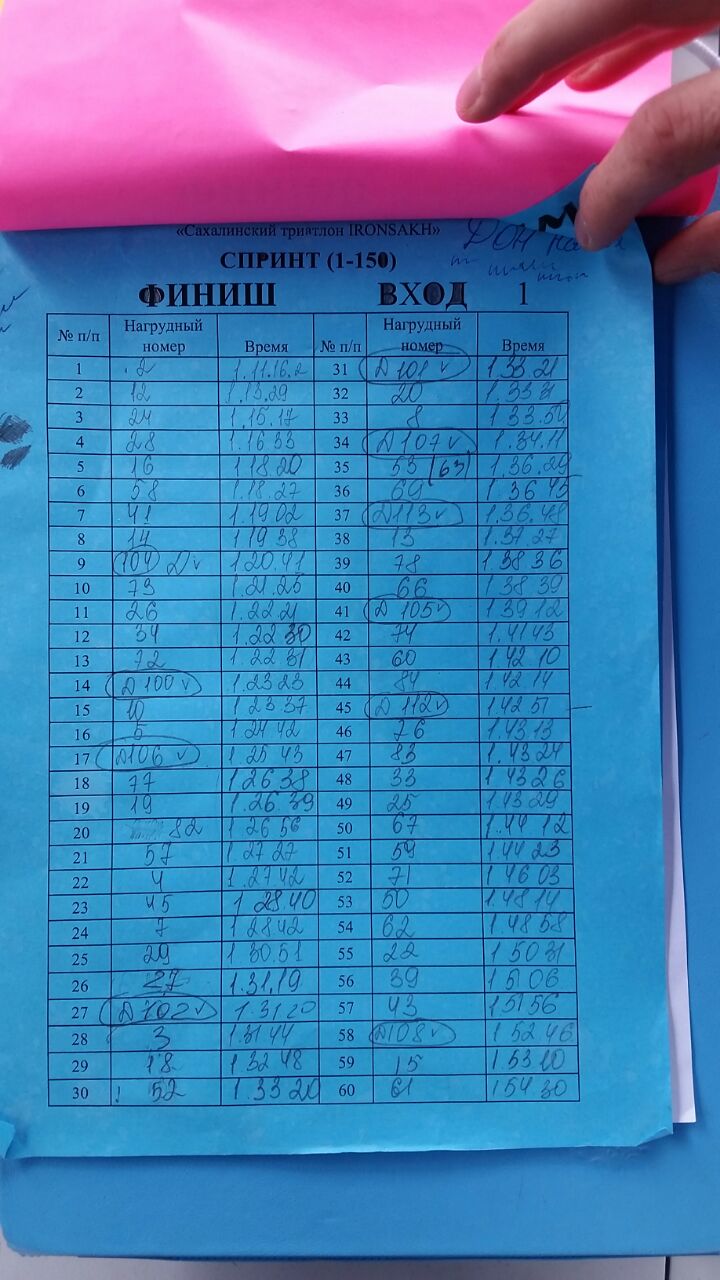 «Сахалинский триатлон IRONSAKH»
СПРИНТ (1-150)
ФИНИШ ВХОД 1
№ п/п Нагрудный номер Время № п/п Нагрудный номер Время
1 2 1.11.16.2 31 Д 101 v 1.33.21
2 12 1.13.29 32 20 1.33.31
3 24 1.15.17 33 8 1.33.50
4 28 1.16.33 34 Д 107 v 1.34.11
5 16 1.18.20 35 53 (63) 1.36.29
6 58 1.18.27 36 69 1.36.45
7 41 1.19.02 37 Д 113 v 1.36.48
8 14 1.19.38 38 13 1.37.27
9 104 Д v 1.20.41 39 78 1.38.36
10 73 1.21.25 40 66 1.38.39
11 26 1.22.21 41 Д 105 v 1.39.12
12 34 1.22.30 42 74 1.41.43
13 72 1.22.31 43 60 1.42.10
14 Д 100 v 1.23.23 44 84 1.42.14
15 10 1.23.37 45 Д 112 v 1.42.51
16 5 1.24.42 46 76 1.43.13
17 Д 106 v 1.25.43 47 83 1.43.24
18 77 1.26.38 48 33 1.43.26
19 19 1.26.39 49 25 1.43.29
20 82 1.26.56 50 67 1.44.12
21 57 1.27.27 51 59 1.44.23
22 4 1.27.42 52 71 1.46.03
23 45 1.28.40 53 50 1.48.14
24 7 1.28.42 54 62 1.48.58
25 29 1.30.51 55 22 1.50.31
26 27 1.31.19 56 39 1.51.06
27 Д 102 v 1.31.20 57 43 1.51.56
28 3 1.31.44 58 Д 108 v 1.52.46
29 18 1.32.48 59 15 1.53.10
30 52 1.33.20 60 61 1.54.30